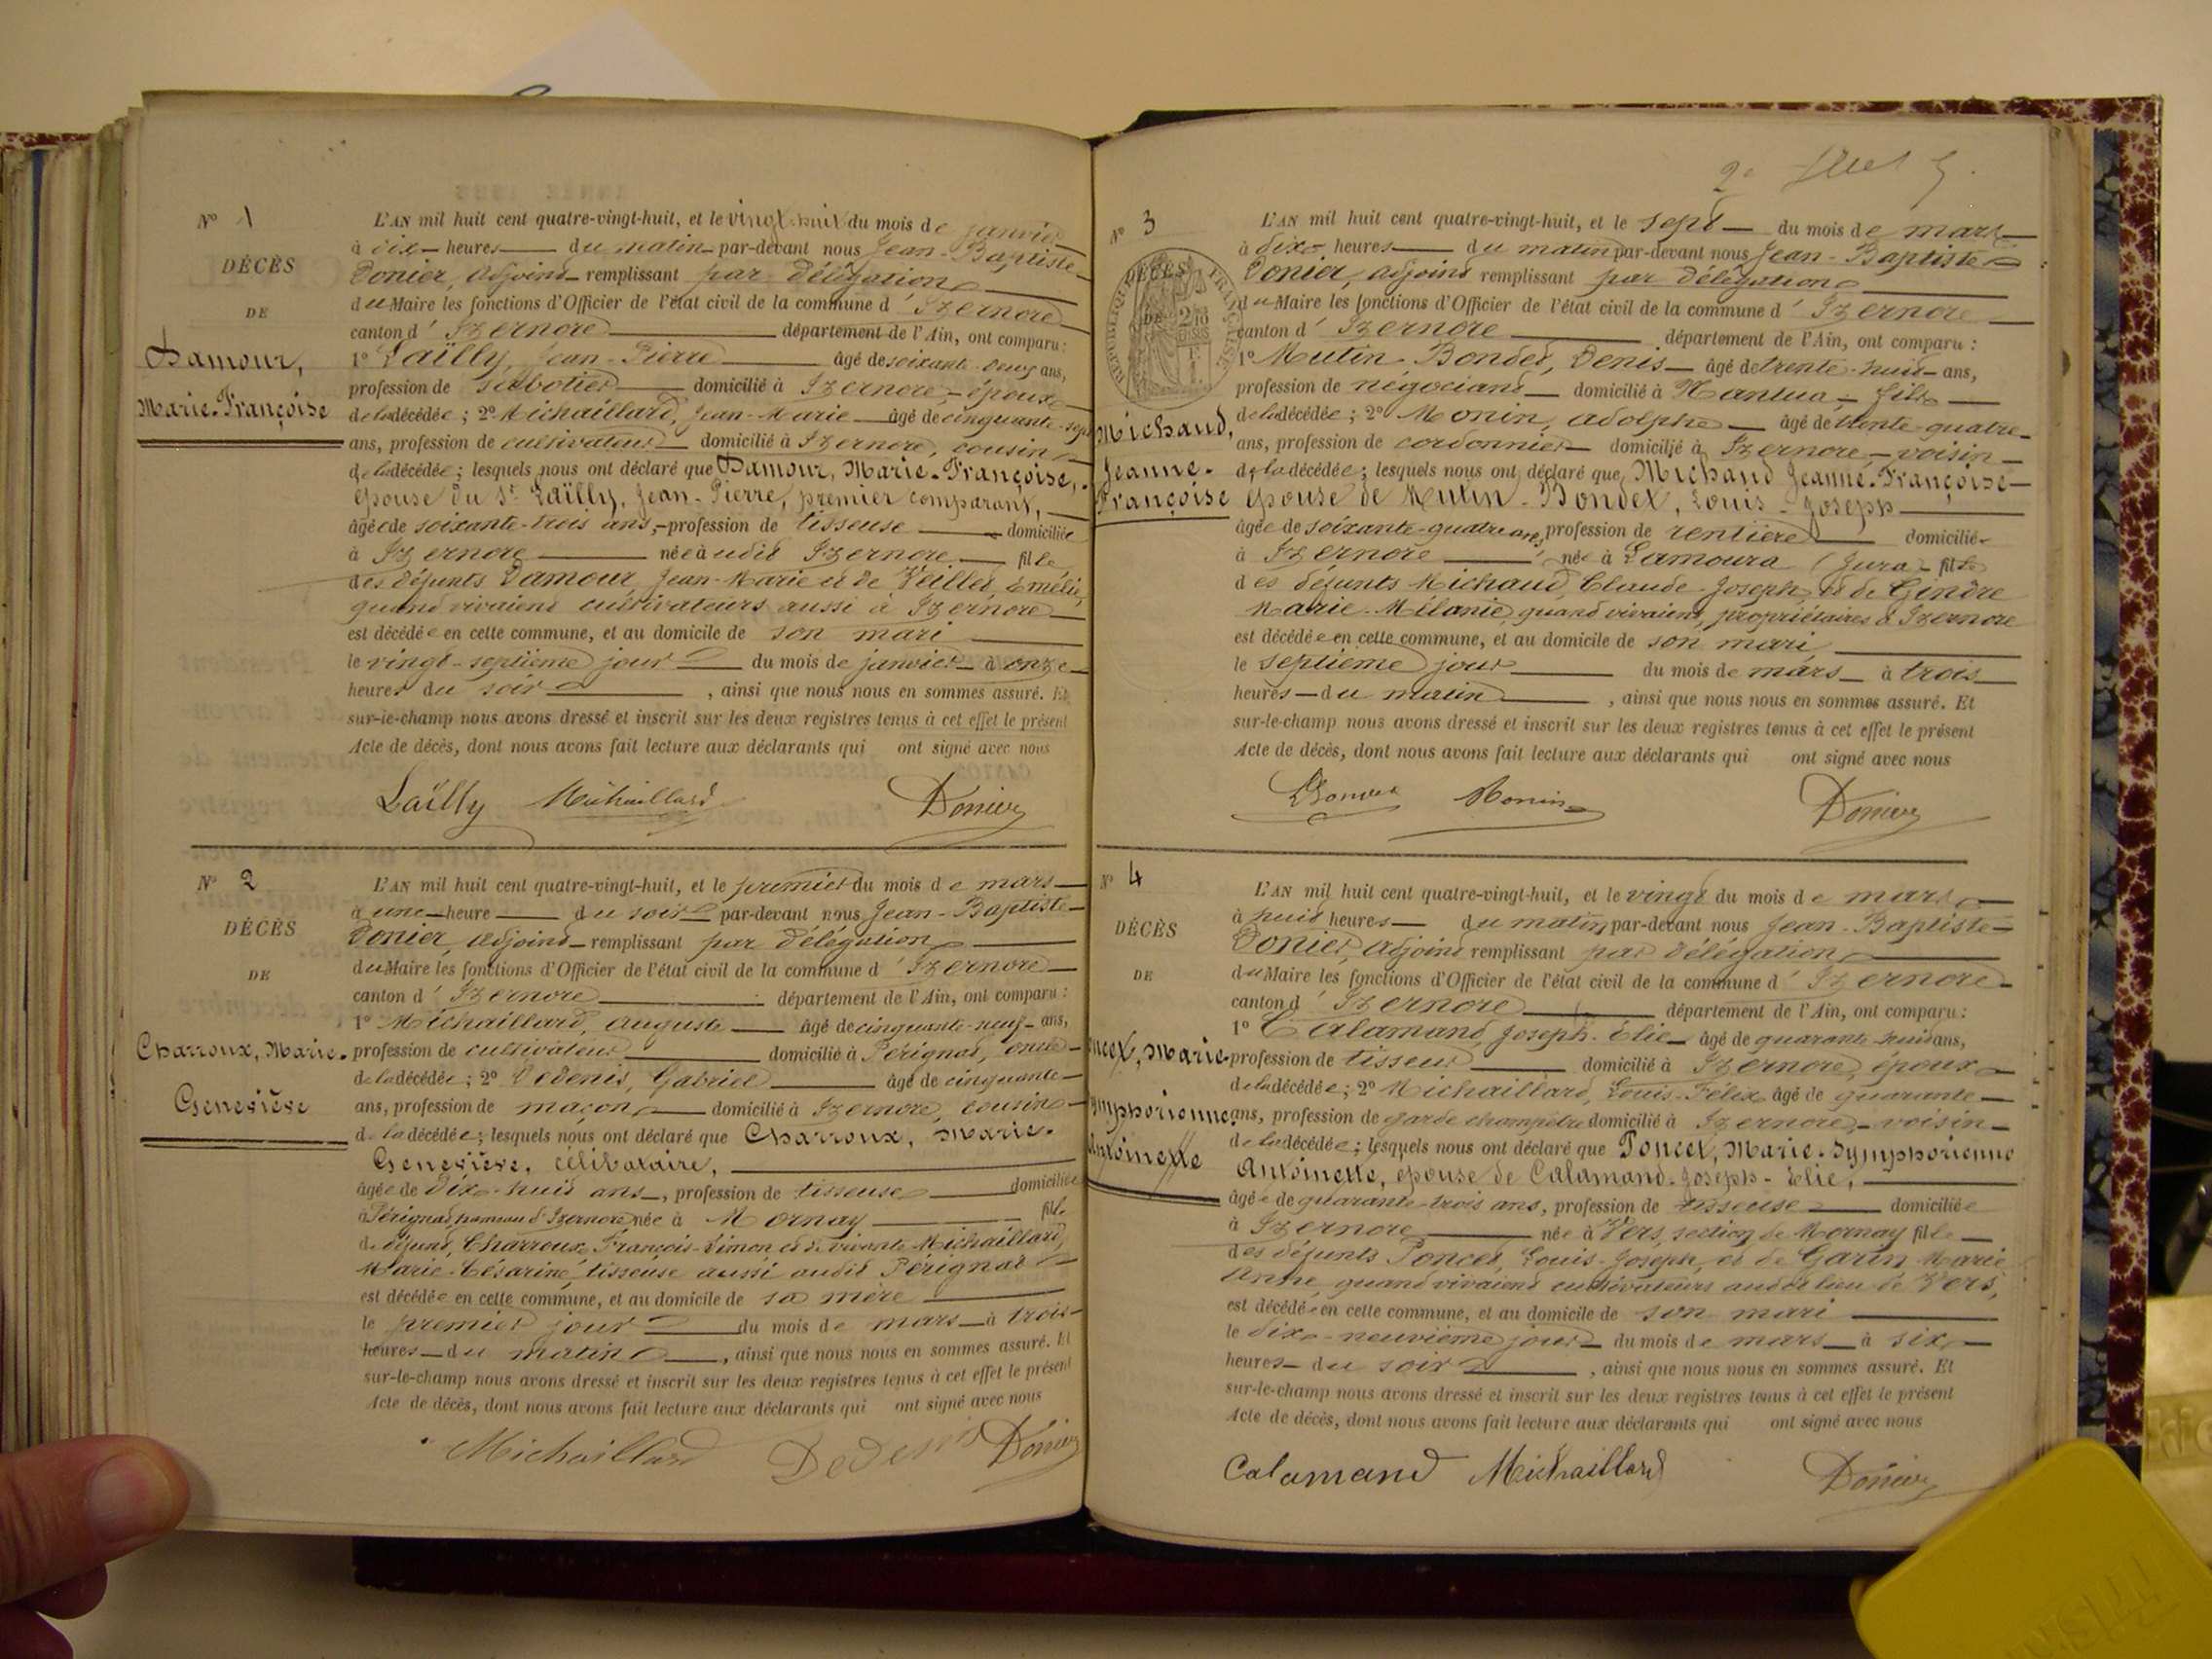 Nº 1
DÉCÈS
DE
Damour,
Marie-Françoise
L'AN mil huit cent quatre-vingt-huit, et le vingt-huit du mois de janvier
à dix heures du matin par-devant nous Jean-Baptiste
Donier, adjoint remplissant par délégation
du Maire les fonctions d'Officier de l'état civil de la commune d'Izernore
canton d'Izernore département de l'Ain, ont comparu :
1º Laïlly, Jean-Pierre âgé de soixante-deux ans,
profession de sabotier domicilié à Izernore, époux
de la décédée ; 2º Michaillard, Jean-Marie âgé de cinquante-sept
ans, profession de cultivateur domicilié à Izernore, cousin
de la décédée ; lesquels nous ont déclaré que Damour, Marie-Françoise,
épouse du Sr Laïlly, Jean-Pierre, premier comparant,
âgée de soixante-trois ans, profession de tisseuse domiciliée
à Izernore née audit Izernore fille
des défunts Damour Jean-Marie et de Veillet, Émélie,
quand vivaient cultivateurs aussi à Izernore
est décédée en cette commune, et au domicile de son mari
le vingt-septième jour du mois de janvier à onze
heures du soir, ainsi que nous nous en sommes assuré. Et
sur-le-champ nous avons dressé et inscrit sur les deux registres tenus à cet effet le présent
Acte de décès, dont nous avons fait lecture aux déclarants qui ont signé avec nous
Laïlly Michaillard Donier
Nº 2
DÉCÈS
DE
Charroux, Marie-
Geneviève
L'AN mil huit cent quatre-vingt-huit, et le premier du mois de mars
à une heure du soir par-devant nous Jean-Baptiste
Donier, adjoint remplissant par délégation
du Maire les fonctions d'Officier de l'état civil de la commune d'Izernore
canton d'Izernore département de l'Ain, ont comparu :
1º Michaillard, Auguste âgé de cinquante-neuf ans,
profession de cultivateur domicilié à Pérignat, oncle
de la décédée ; 2º Dedenis, Gabriel âgé de cinquante
ans, profession de maçon domicilié à Izernore, cousin
de la décédée ; lesquels nous ont déclaré que Charroux, Marie-
Geneviève, célibataire,
âgée de dix-huit ans, profession de tisseuse domiciliée
à Pérignat, hameau d'Izernore née à Mornay fille
de défunt, Charroux François-Simon et de vivante Michaillard,
Marie-Césarine tisseuse aussi audit Pérignat
est décédée en cette commune, et au domicile de sa mère
le premier jour du mois de mars à trois
heures du matin, ainsi que nous nous en sommes assuré. Et
sur-le-champ nous avons dressé et inscrit sur les deux registres tenus à cet effet le présent
Acte de décès, dont nous avons fait lecture aux déclarants qui ont signé avec nous
Michaillard Dedenis Donier
Nº 3
DÉCÈS
DE
Michaud,
Jeanne-
Françoise
L'AN mil huit cent quatre-vingt-huit, et le sept du mois de mars
à dix heures du matin par-devant nous Jean-Baptiste
Donier, adjoint remplissant par délégation
du Maire les fonctions d'Officier de l'état civil de la commune d'Izernore
canton d'Izernore département de l'Ain, ont comparu :
1º Mutin-Bondet, Denis âgé de trente-huit ans,
profession de négociant domicilié à Nantua, fils
de la décédée ; 2º Monin, Adolphe âgé de trente-quatre
ans, profession de cordonnier domicilié à Izernore, voisin
de la décédée ; lesquels nous ont déclaré que Michaud Jeanne-Françoise
épouse de Mutin-Bondet, Louis-Joseph
âgée de soixante-quatre ans, profession de rentière domiciliée
à Izernore née à Lamoura (Jura fille
des défunts Michaud, Claude-Joseph et de Gindre
Marie-Mélanie, quand vivaient, propriétaires à Izernore
est décédée en cette commune, et au domicile de son mari
le septième jour du mois de mars à trois
heures du matin, ainsi que nous nous en sommes assuré. Et
sur-le-champ nous avons dressé et inscrit sur les deux registres tenus à cet effet le présent
Acte de décès, dont nous avons fait lecture aux déclarants qui ont signé avec nous
Bondet Monin Donier
Nº 4
DÉCÈS
DE
ncet, Marie-
ymphorienne
Antoinette
L'AN mil huit cent quatre-vingt-huit, et le vingt du mois de mars
à huit heures du matin, par-devant nous Jean-Baptiste
Donier, adjoint remplissant par délégation
du Maire les fonctions d'Officier de l'état civil de la commune d'Izernore
canton d'Izernore département de l'Ain, ont comparu :
1º Calamand Joseph-Élie âgé de quarante-huit ans,
profession de tisseur domicilié à Izernore, époux
de la décédée ; 2º Michaillard, Louis-Félix âgé de quarante
ans, profession de garde champêtre domicilié à Izernore, voisin
de la décédée ; lesquels nous ont déclaré que Poncet, Marie-Symphorienne
Antoinette, épouse de Calamand-Joseph-Élie,
âgée de quarante-trois ans, profession de tisseuse domiciliée
à Izernore née à Vers, section de Mornay fille
des défunts Poncet, Louis-Joseph, et de Garin Marie
Anne, quand vivaient cultivateurs audit lieu de Vers,
est décédée en cette commune, et au domicile de son mari
le dix-neuvième jour du mois de mars à six
heures du soir, ainsi que nous nous en sommes assuré. Et
sur-le-champ nous avons dressé et inscrit sur les deux registres tenus à cet effet le présent
Acte de décès, dont nous avons fait lecture aux déclarants qui ont signé avec nous
Calamand Michaillard Donier